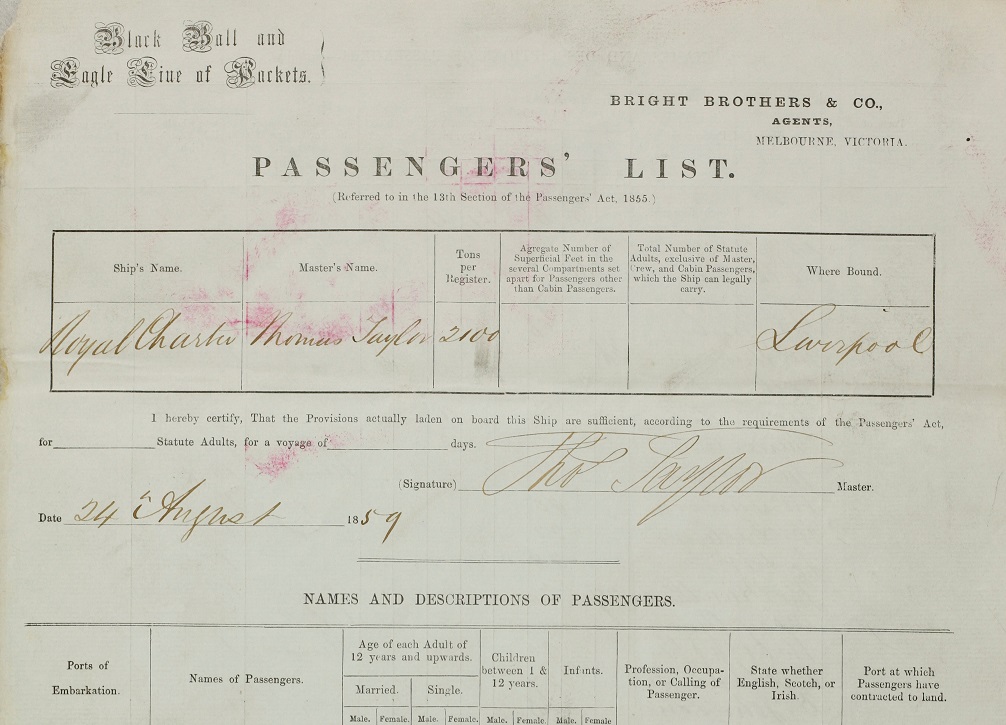 Black Ball and
Eagle Line of Packets.
BRIGHT BROTHERS & CO.,
AGENTS,
MELBOURNE, VICTORIA.
PASSENGERS' LIST.
(Referred to in the 13th Section of the Passengers' Act, 1855.)
Ship's Name.
Master's Name.
Tons
per
Register.
Agregate Number of
Superficial Feet in the
several Compartments set
apart for Passengers other
than Cabin Passengers.
Total Number of Statute
Adults, exclusive of Master,
Crew, and Cabin Passengers,
which the Ship can legally
carry.
Where Bound.
Royal Charter Thomas Taylor 2100 Liverpool
I hereby certify, That the Provisions actually laden on board this Ship are sufficient, according to the requirements of the Passengers' Act,
for Statute Adults, for a voyage of days.
(Signature) Tho^s Taylor Master.
Date 24th August 1859
NAMES AND DESCRIPTIONS OF PASSENGERS.
Ports of
Embarkation.
Names of Passengers.
Age of each Adult of
12 years and upwards.
Married. Single.
Male. Female. Male. Female.
Children
between 1 &
12 years.
Male. Female
Infants.
Male. Female
Profession, Occupa-
tion, or Calling of
Passenger.
State whether
English, Scotch, or
Irish.
Port at which
Passengers have
contracted to land.